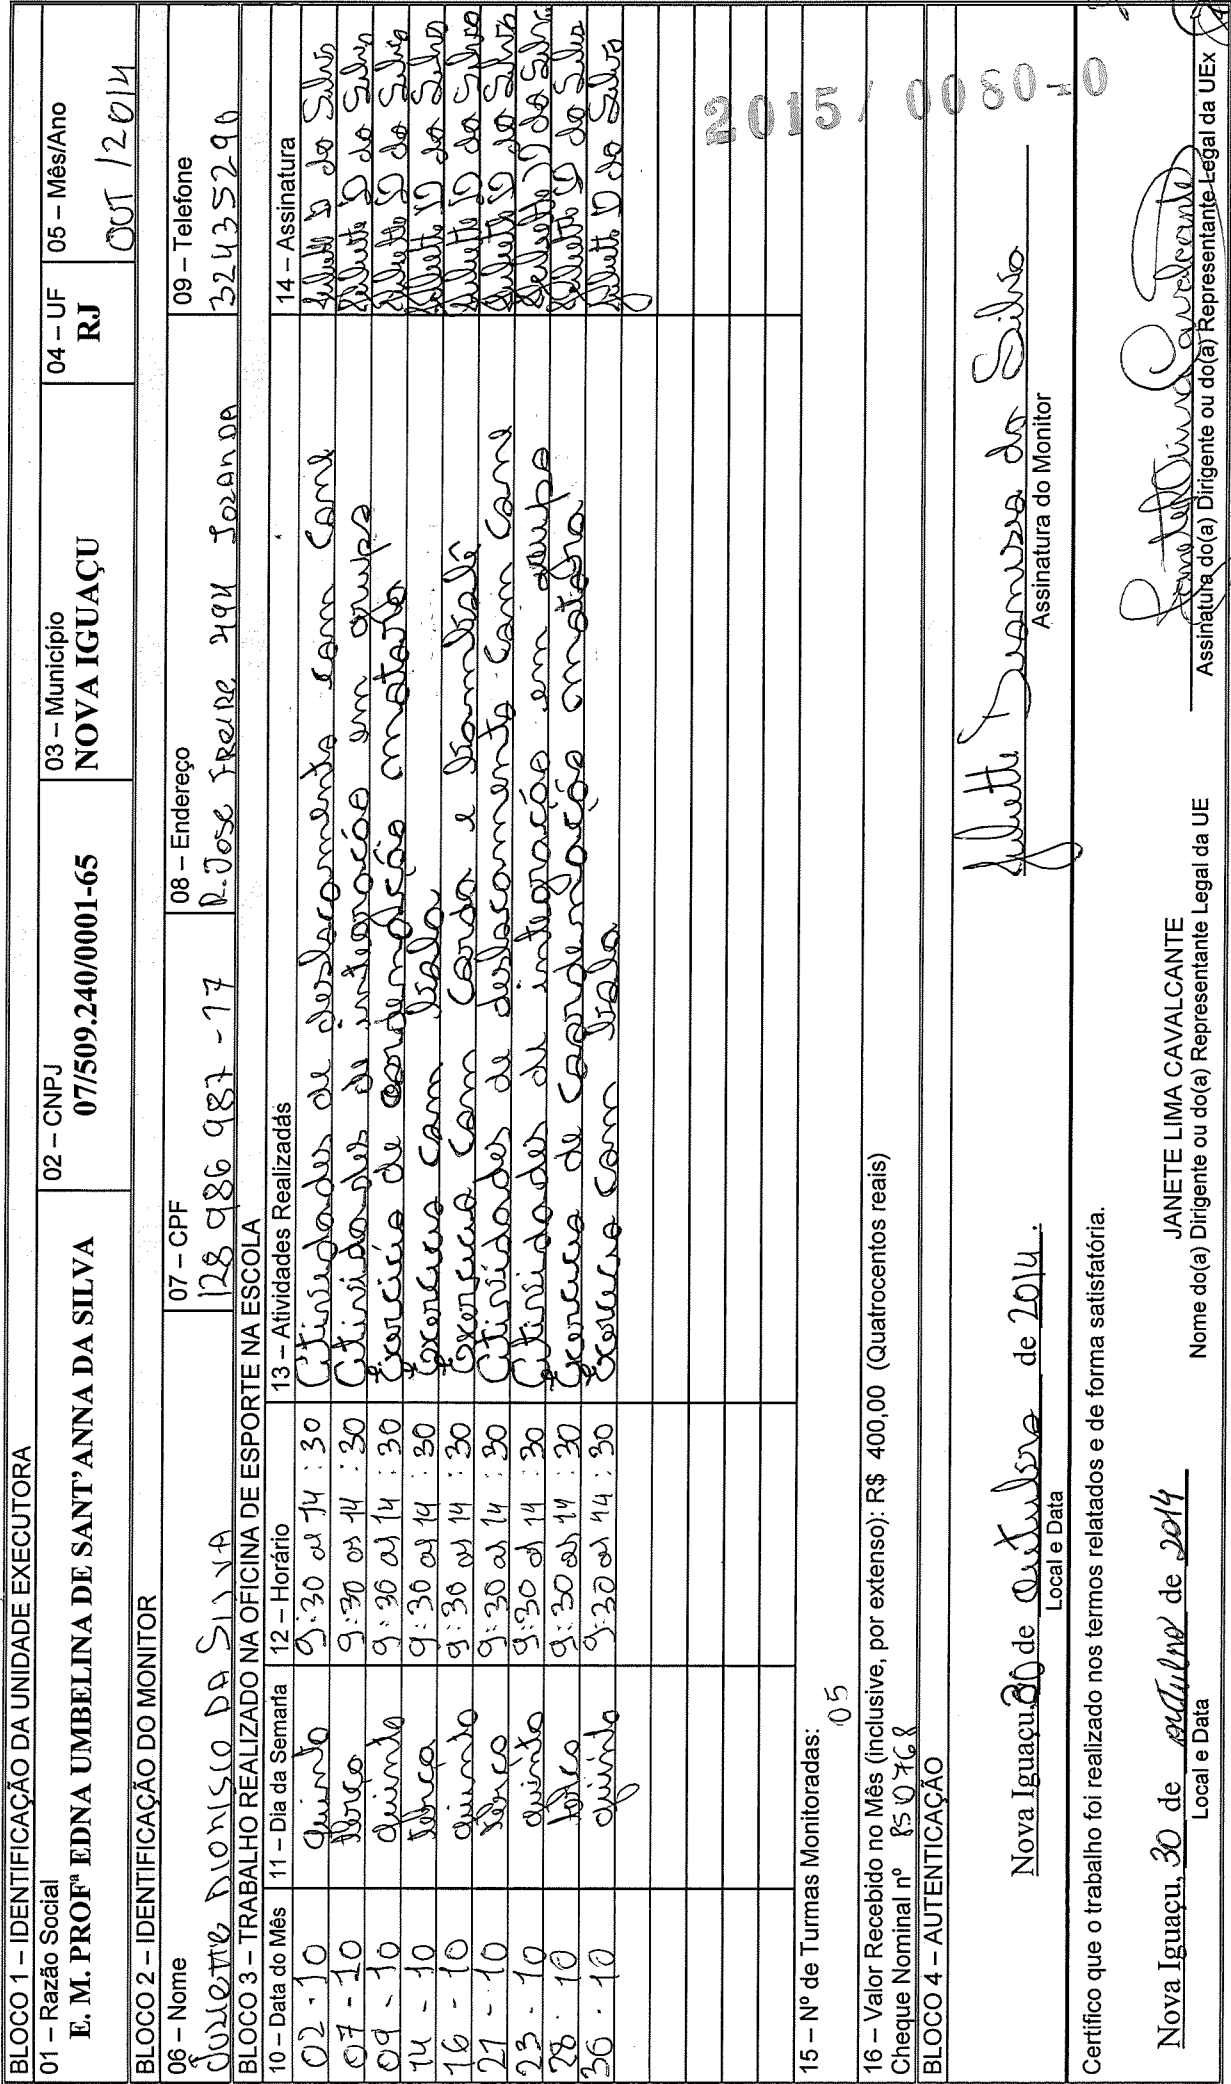 BLOCO 1 – IDENTIFICAÇÃO DA UNIDADE EXECUTORA
01 – Razão Social
E. M. PROFª EDNA UMBELINA DE SANT'ANNA DA SILVA
02 – CNPJ
07/509.240/0001-65
03 – Município
NOVA IGUAÇU
04 – UF
RJ
05 – Mês/Ano
OUT /2014
BLOCO 2 – IDENTIFICAÇÃO DO MONITOR
06 – Nome
DIONISIO DA SILVA
07 – CPF
128 986 987 - 17
08 – Endereço
R. Jose Freire 494
09 – Telefone
32435290
BLOCO 3 – TRABALHO REALIZADO NA OFICINA DE ESPORTE NA ESCOLA
10 – Data do Mês 11 – Dia da Semana 12 – Horário 13 – Atividades Realizadas 14 – Assinatura
02 - 10 quinta 9:30 as 14:30 Atividades de deslocamento com cone
07 - 10 terça 9:30 as 14:30 Atividades de integração em grupo
09 - 10 quinta 9:30 as 14:30 Exercicio de cordenação motora
14 - 10 terça 9:30 as 14:30 Exercicio com bola
16 - 10 quinta 9:30 as 14:30 Exercicio com corda e bambolê
21 - 10 terça 9:30 as 14:30 Atividades de deslocamento com cone
23 - 10 quinta 9:30 as 14:30 Atividades de integração em grupo
28 - 10 terça 9:30 as 14:30 Exercicio de cordenação motora
30 - 10 quinta 9:30 as 14:30 Exercicio com bola
2015 / 0080-0
15 – Nº de Turmas Monitoradas:
05
16 – Valor Recebido no Mês (inclusive, por extenso): R$ 400,00 (Quatrocentos reais)
Cheque Nominal nº 850768
BLOCO 4 – AUTENTICAÇÃO
Nova Iguaçu, 30 de outubro de 2014.
Local e Data
da Silva
Assinatura do Monitor
Certifico que o trabalho foi realizado nos termos relatados e de forma satisfatória.
Nova Iguaçu, 30 de outubro de 2014
Local e Data
JANETE LIMA CAVALCANTE
Nome do(a) Dirigente ou do(a) Representante Legal da UE
Janete Lima Cavalcante
Assinatura do(a) Dirigente ou do(a) Representante Legal da UEx